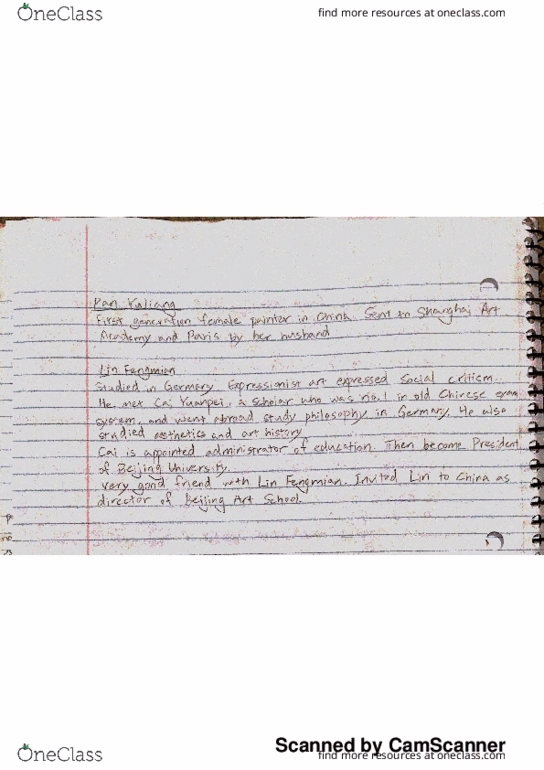 OneClass
find more resources at oneclass.com
Pan Yuliang
First generation female painter in China. Sent to Shanghai Art
Academy and Paris by her husband
Lin Fengmian
Studied in Germany. Expressionist art expressed social critism.
He met Cai Yuanpei, a scholar who was no.1 in old Chinese exam
system, and went abroad study philosophy in Germany. He also
studied aesthetics and art history
Cai is appointed administrator of education. Then become President
of Beijing University.
Very good friend with Lin Fengmian. Invited Lin to China as
director of Beijing Art School.
Scanned by CamScanner
OneClass
find more resources at oneclass.com